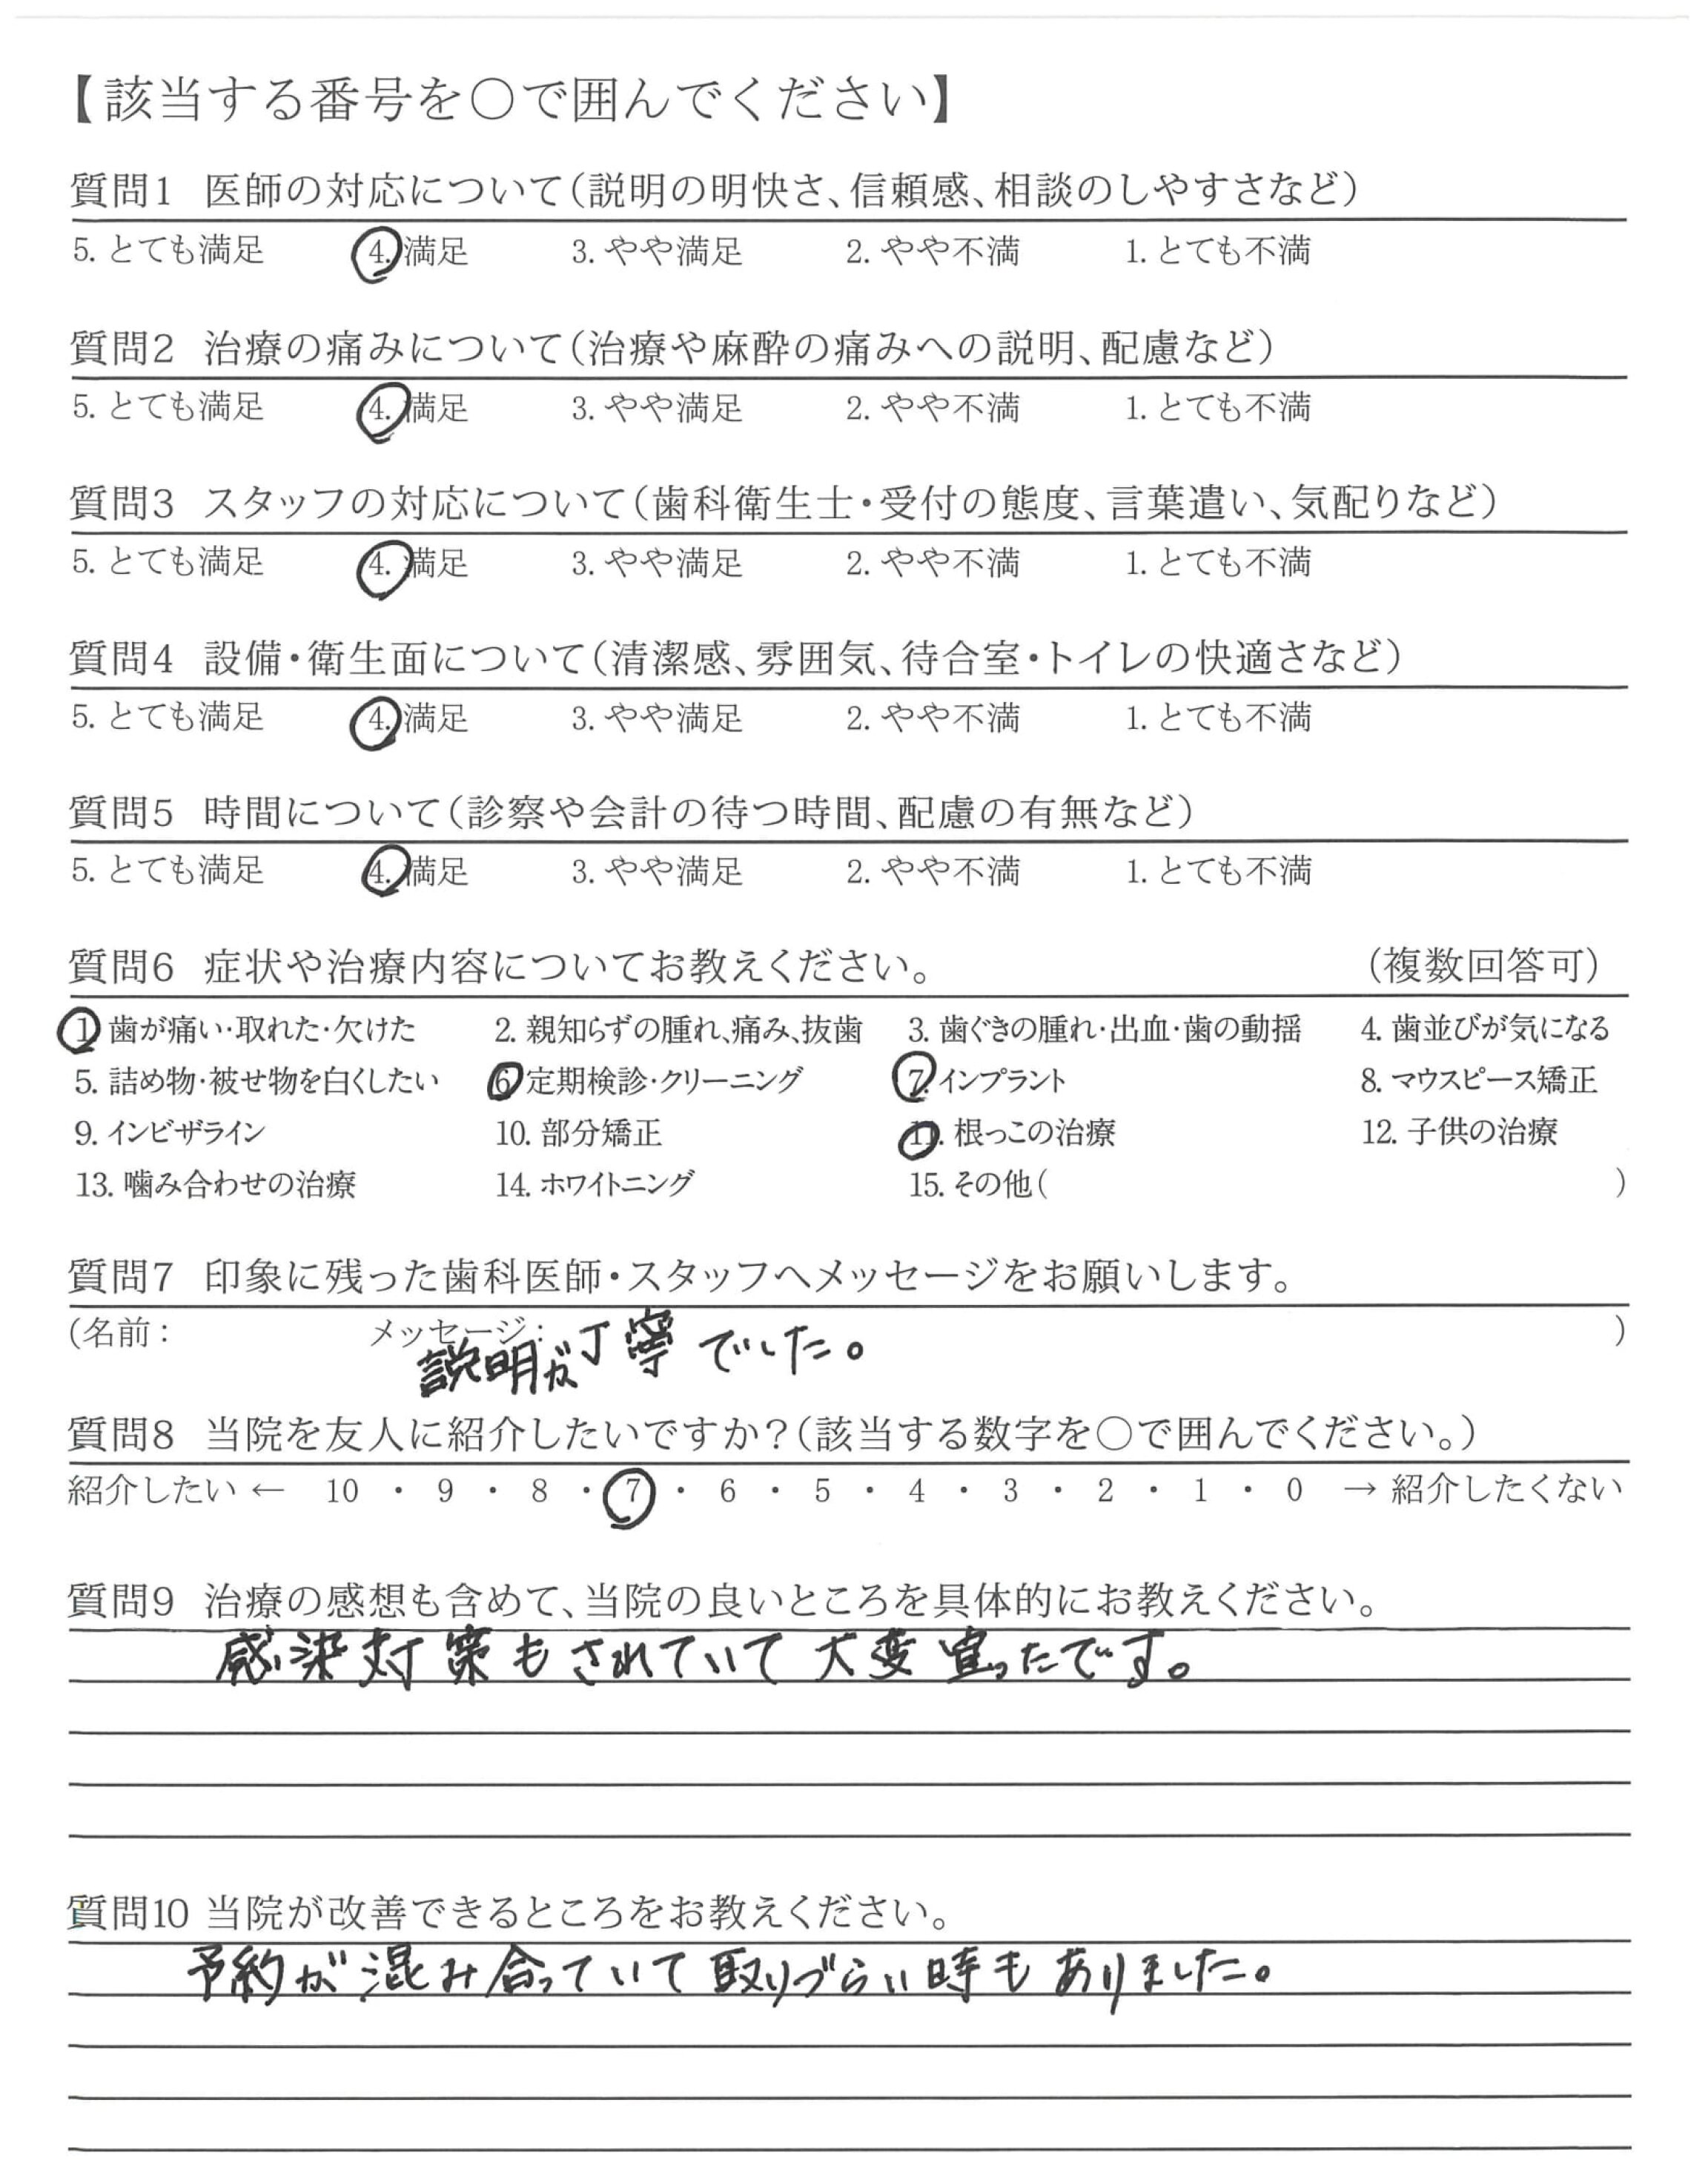 【該当する番号を○で囲んでください】
質問1 医師の対応について(説明の明快さ、信頼感、相談のしやすさなど)
5. とても満足 4. 満足 3. やや満足 2. やや不満 1. とても不満
質問2 治療の痛みについて(治療や麻酔の痛みへの説明、配慮など)
5. とても満足 4. 満足 3. やや満足 2. やや不満 1. とても不満
質問3 スタッフの対応について(歯科衛生士・受付の態度、言葉遣い、気配りなど)
5. とても満足 4. 満足 3. やや満足 2. やや不満 1. とても不満
質問4 設備・衛生面について(清潔感、雰囲気、待合室・トイレの快適さなど)
5. とても満足 4. 満足 3. やや満足 2. やや不満 1. とても不満
質問5 時間について(診察や会計の待つ時間、配慮の有無など)
5. とても満足 4. 満足 3. やや満足 2. やや不満 1. とても不満
質問6 症状や治療内容についてお教えください。 (複数回答可)
1. 歯が痛い・取れた・欠けた 2. 親知らずの腫れ、痛み、抜歯 3. 歯ぐきの腫れ・出血・歯の動揺 4. 歯並びが気になる
5. 詰め物・被せ物を白くしたい 6. 定期検診・クリーニング 7. インプラント 8. マウスピース矯正
9. インビザライン 10. 部分矯正 11. 根っこの治療 12. 子供の治療
13. 噛み合わせの治療 14. ホワイトニング 15. その他( )
質問7 印象に残った歯科医師・スタッフへメッセージをお願いします。
(名前: メッセージ: )
説明が丁寧でした。
質問8 当院を友人に紹介したいですか?(該当する数字を○で囲んでください。)
紹介したい ← 10 ・ 9 ・ 8 ・ 7 ・ 6 ・ 5 ・ 4 ・ 3 ・ 2 ・ 1 ・ 0 → 紹介したくない
質問9 治療の感想も含めて、当院の良いところを具体的にお教えください。
感染対策もされていて大変宜ったです。
質問10 当院が改善できるところをお教えください。
予約が混み合っていて取りづらい時もありました。